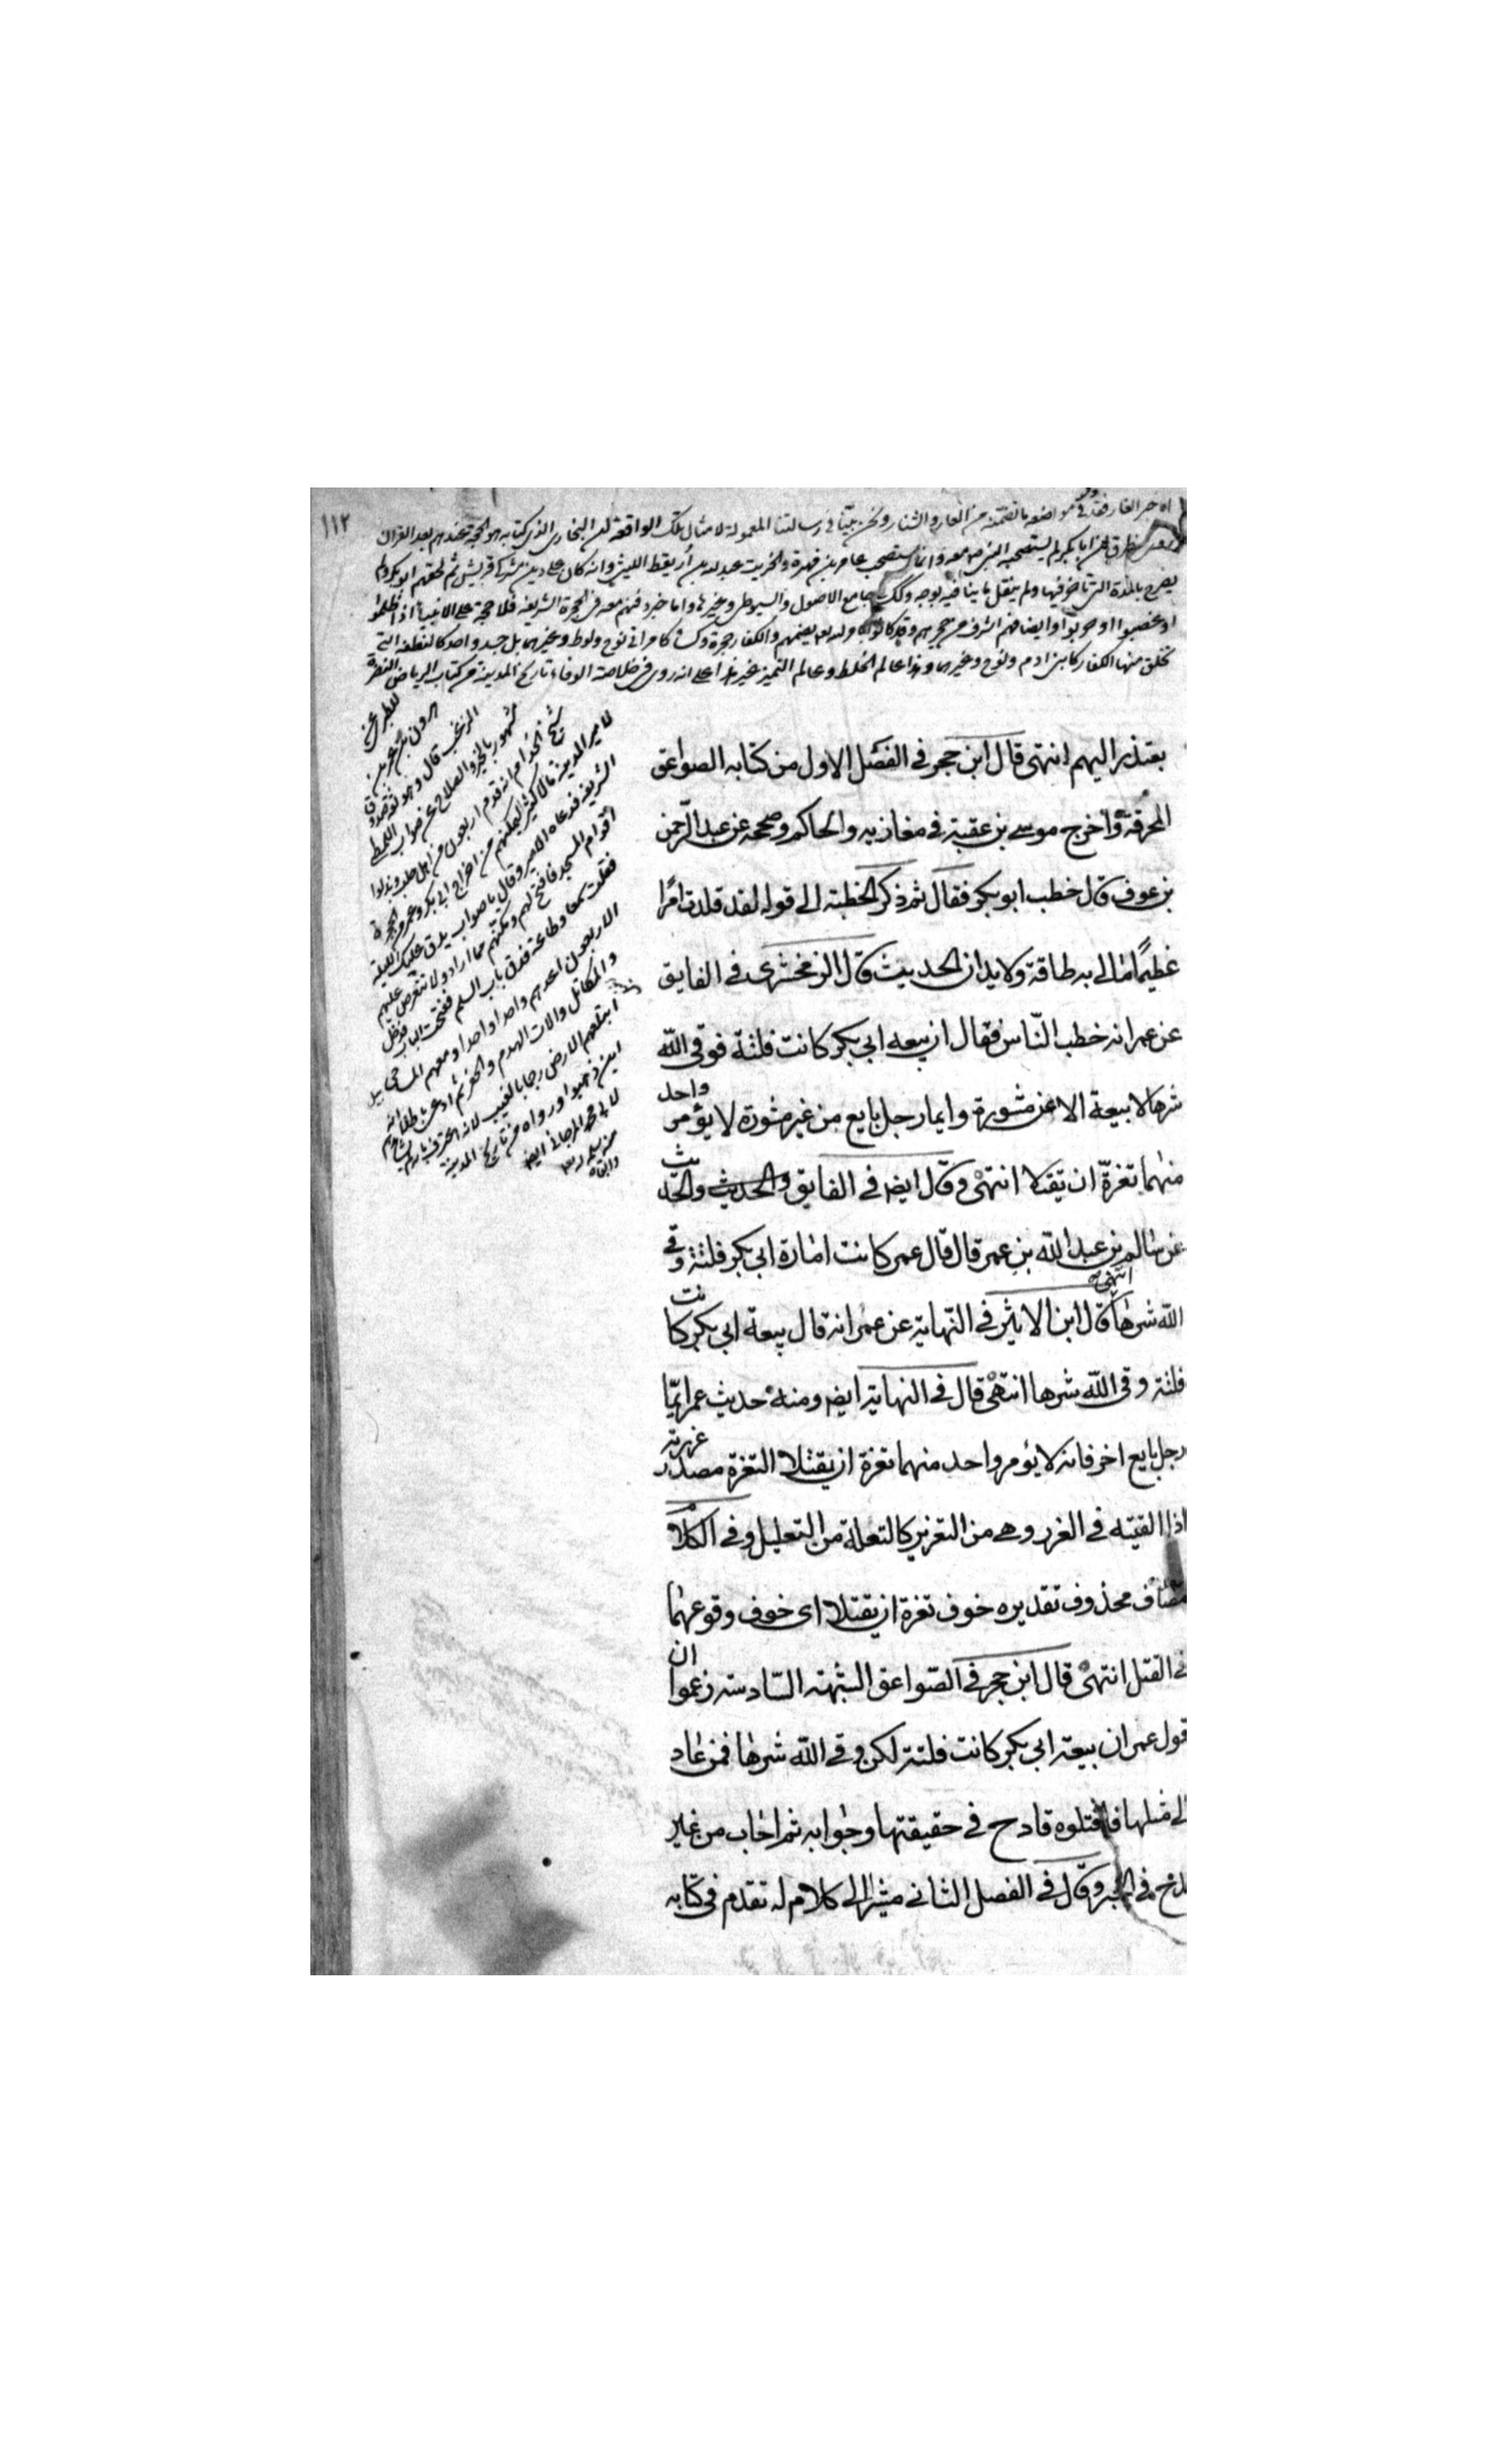 ١١٢
اه خبر الغار فقد في مواضعه ما تضمنه من العار والشنار ونحن بينا في رسالتنا المعمولة لامثال تلك الواقعة لان البخاري الذي كتابه هو الحجة عندهم بعد القران
ان ابا بكر لم يستصحبه النبي ص معه وانما استصحب عامر بن فهيرة والخريت عبد الله بن أريقط الليثي وانه كان على دين مشركي قريش ثم لحقهم ابو بكر ولم
يصرح بالمدة التي تأخر فيها ولم ينقل ما ينافيه بوجه وكك جامع الاصول والسيوطي وغيرها واما خبر دفنهم معه في الحجرة الشريفة فلا حجة على الانبياء اذا ظلموا
او غصبوا او حوربوا وايضا فهم اشرف من حجرهم وقد كانوا ولد بعد بعضهم والكفار حجرة كامراتي نوح ولوط وغيرهما بل جسد واحد كالنطفة التي
تخلق منها الكفار كابن ادم ونوح وغيرهما وهذا عالم الخلط وعالم التميز غير هذا على انه روى في خلاصة الوفاء تاريخ المدينة من كتاب الرياض النضرة
للطبري عن
هرون بن عمر بن
الزغب قال وهو ثقة صدوق
مشهور بالخير والصلاح عن صواب اللمطي
شيخ الخدام انه قدم اربعون من اهل حلب وبذلوا
لامير المدينة مالا كثيرا ليمكنهم من اخراج ابي بكر وعمر من الحجرة
الشريفة فدعاه الامير وقال يا صواب يدق عليك الليلة
أقوام المسجد فافتح لهم ومكنهم مما ارادوا ولا تتعرض عليهم
فقلت سمعا وطاعة فدق باب السلم ففتحت الباب فدخل
الاربعون اعدهم واحدا واحدا ومعهم المساحي
والمكاتل والات الهدم والحفر ثم ادعى
ابتلعتهم الارض رجما بالغيب لانه
اين ذهبوا ورواه من تاريخ المدينة
لابي محمد المرجاني ايض
منه سلمه الله
وابقاه
يعتذر اليهم انتهى قال ابن حجر في الفصل الاول من كتابه الصواعق
المحرقة واخرج موسى بن عقبة في مغازيه والحاكم وصححه عن عبد الرّحمن
بن عوف قال خطب ابو بكر فقال ثم ذكر الخطبة الى قوله لقد قلدت امرًا
عظيمًا مالي به طاقة ولا يدان الحديث قال الزمخشري في الفايق
عن عمر انه خطب النّاس فقال ان بيعه ابي بكر كانت فلتة فوقى الله
شرها لا بيعة الا عن مشورة وايما رجل بايع من غير مشورة لا يؤمر واحد
منهما تغرّة ان يقتلا انتهى وقال ايض في الفايق والحديث والحديث
عن سالم بن عبد الله بن عمر قال قال عمر كانت امارة ابي بكر فلتة وقى
الله شرها انتهى قال ابن الاثير في النهاية عن عمر انه قال بيعة ابي بكر كانت
فلتة وقى الله شرها انتهى قال في النهاية ايض ومنه حديث عمر ايّما
رجل بايع اخر فانه لا يؤمر واحد منهما تغرة ان يقتلا التغرة مصدر غررته
اذا القيته في الغرر وهي من التغرير كالتعلة من التعليل وفي الكلام
مضاف محذوف تقديره خوف تغرة ان يقتلا اى خوف وقوعهما
في القتل انتهى قال ابن حجر في الصواعق الشبهة السّادسة زعموا ان
قول عمر ان بيعة ابي بكر كانت فلتة لكن وقى الله شرها فمن عاد
الى مثلها فاقتلوه قادح في حقيقتها وجوابه ثم اجاب من غير
قدح في الخبر وقال في الفصل الثاني مشيرا الى كلام له تقدم في كتابه